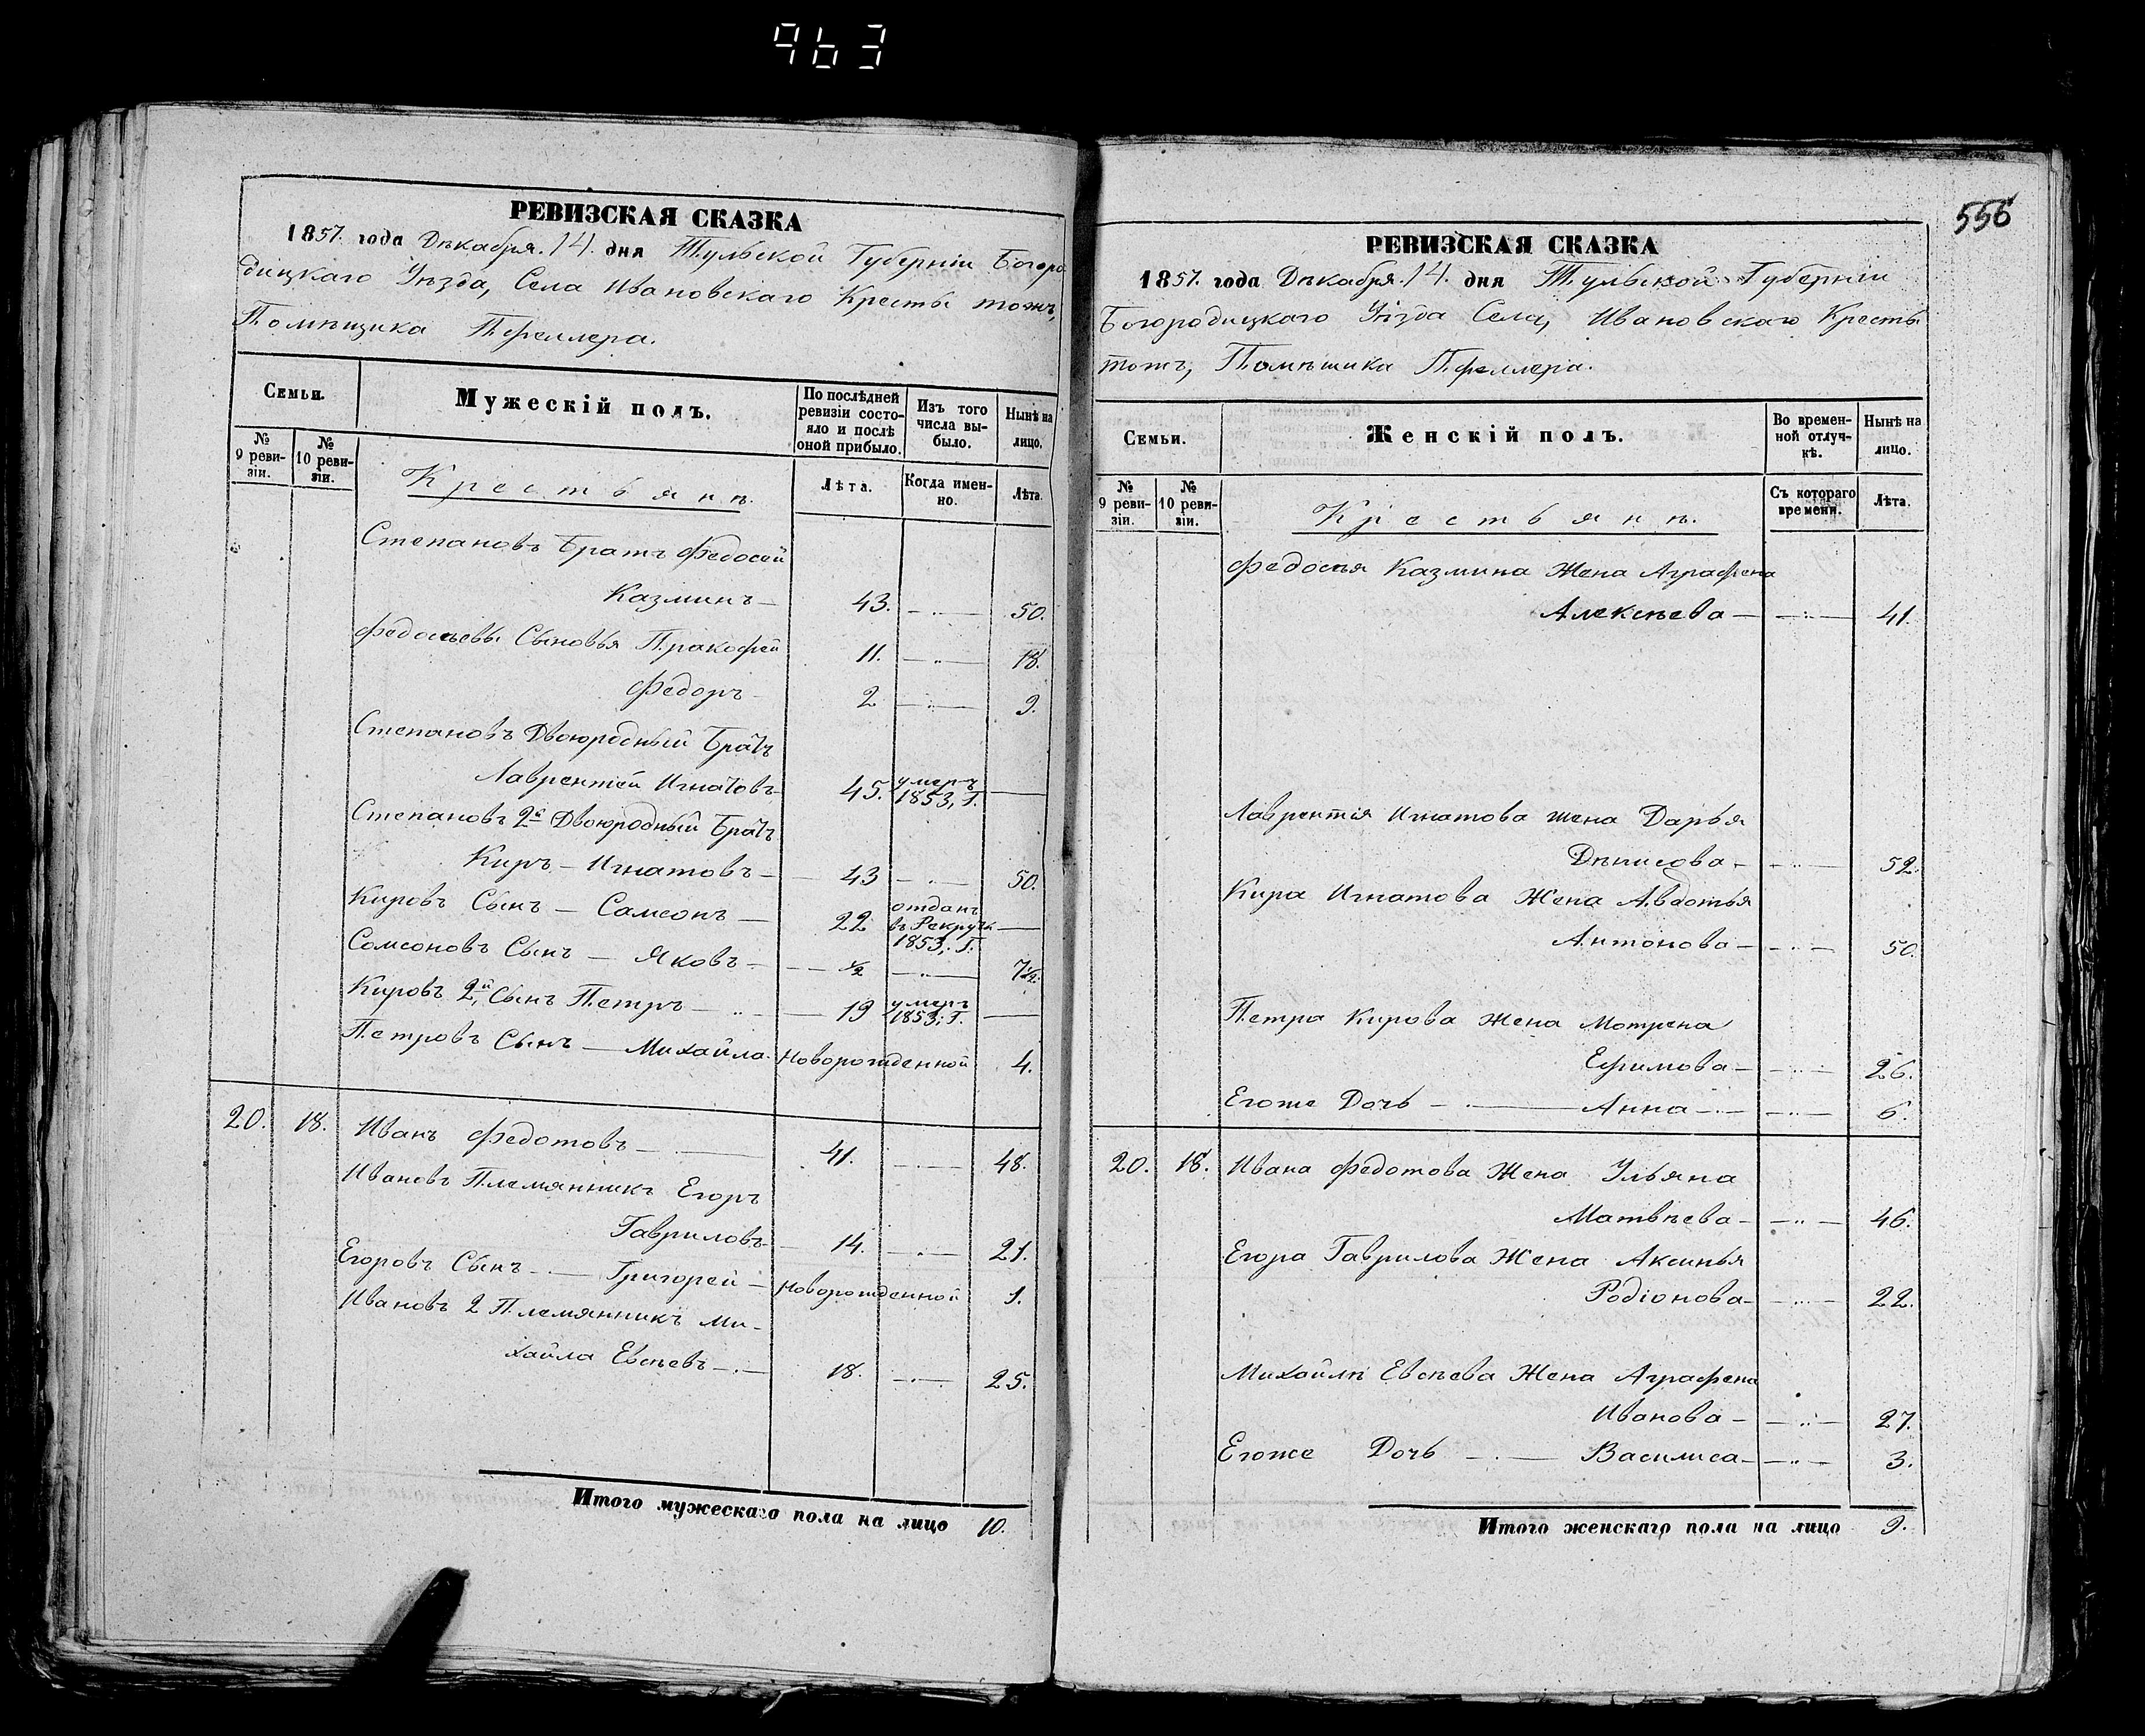 963
РЕВИЗСКАЯ СКАЗКА
1857. года Декабря. 14. дня Тульской Губерніи Богоро
дицкаго Уѣзда, Села Ивановскаго Кресты тожъ,
Помѣщика Пфеллера.
Семьи.
Мужескій полъ.
По послѣдней ревизіи состояло и послѣ оной прибыло.
Изъ того числа выбыло.
Нынѣ на лицо.
№ 9 ревизіи.
№ 10 ревизіи.
Крестьяне.
Лѣта.
Когда именно.
Лѣта.
Степановъ Братъ Федосей
Казминъ — 43. — 50.
Федосѣевы Сыновья Пракофей 11. — 18.
Федоръ — 2 — 9.
Степановъ Двоюродный Братъ
Лаврентей Игнатовъ — 45. умеръ 1853, г. —
Степановъ 2й Двоюродный Братъ
Киръ — Игнатовъ — 43 — 50.
Кировъ Сынъ — Самсонъ — 22 отданъ въ Рекруты 1853, г. —
Сомсоновъ Сынъ — Яковъ — ½ — 7½.
Кировъ 2й, Сынъ Петръ — 19 умеръ 1853, г. —
Петровъ Сынъ — Михайла. Новорожденной 4.
20. 18. Иванъ Федотовъ — 41. — 48.
Ивановъ Племянникъ Егоръ
Гавриловъ — 14. — 21.
Егоровъ Сынъ — Григорей — Новорожденной 1.
Ивановъ 2 Племянникъ Ми-
хайла Евсѣевъ — 18. — 25.
Итого мужескаго пола на лицо 10.
556
РЕВИЗСКАЯ СКАЗКА
1857. года Декабря. 14. дня Тульской Губерніи
Богородицкаго Уѣзда Села, Ивановскаго Кресты
тожъ, Помѣщика Пфеллера.
Семьи.
Женскій полъ.
Во временной отлучкѣ.
Нынѣ на лицо.
№ 9 ревизіи.
№ 10 ревизіи.
Крестьяне.
Съ котораго времени.
Лѣта.
Федосѣя Казмина Жена Аграфена
Алексѣева — 41.
Лаврентія Игнатова жена Дарья
Денисова — 52.
Кира Игнатова Жена Авдотья
Антонова — 50.
Петра Кирова Жена Мотрена
Ефимова — 26.
Егоже Дочь — Анна — 6.
20. 18. Ивана Федотова Жена Ульяна
Матвѣева — 46.
Егора Гаврилова Жена Аксинья
Родіонова — 22.
Михайлы Евсѣева Жена Аграфена
Иванова — 27.
Егоже Дочь — Василиса — 3.
Итого женскаго пола на лицо 9.